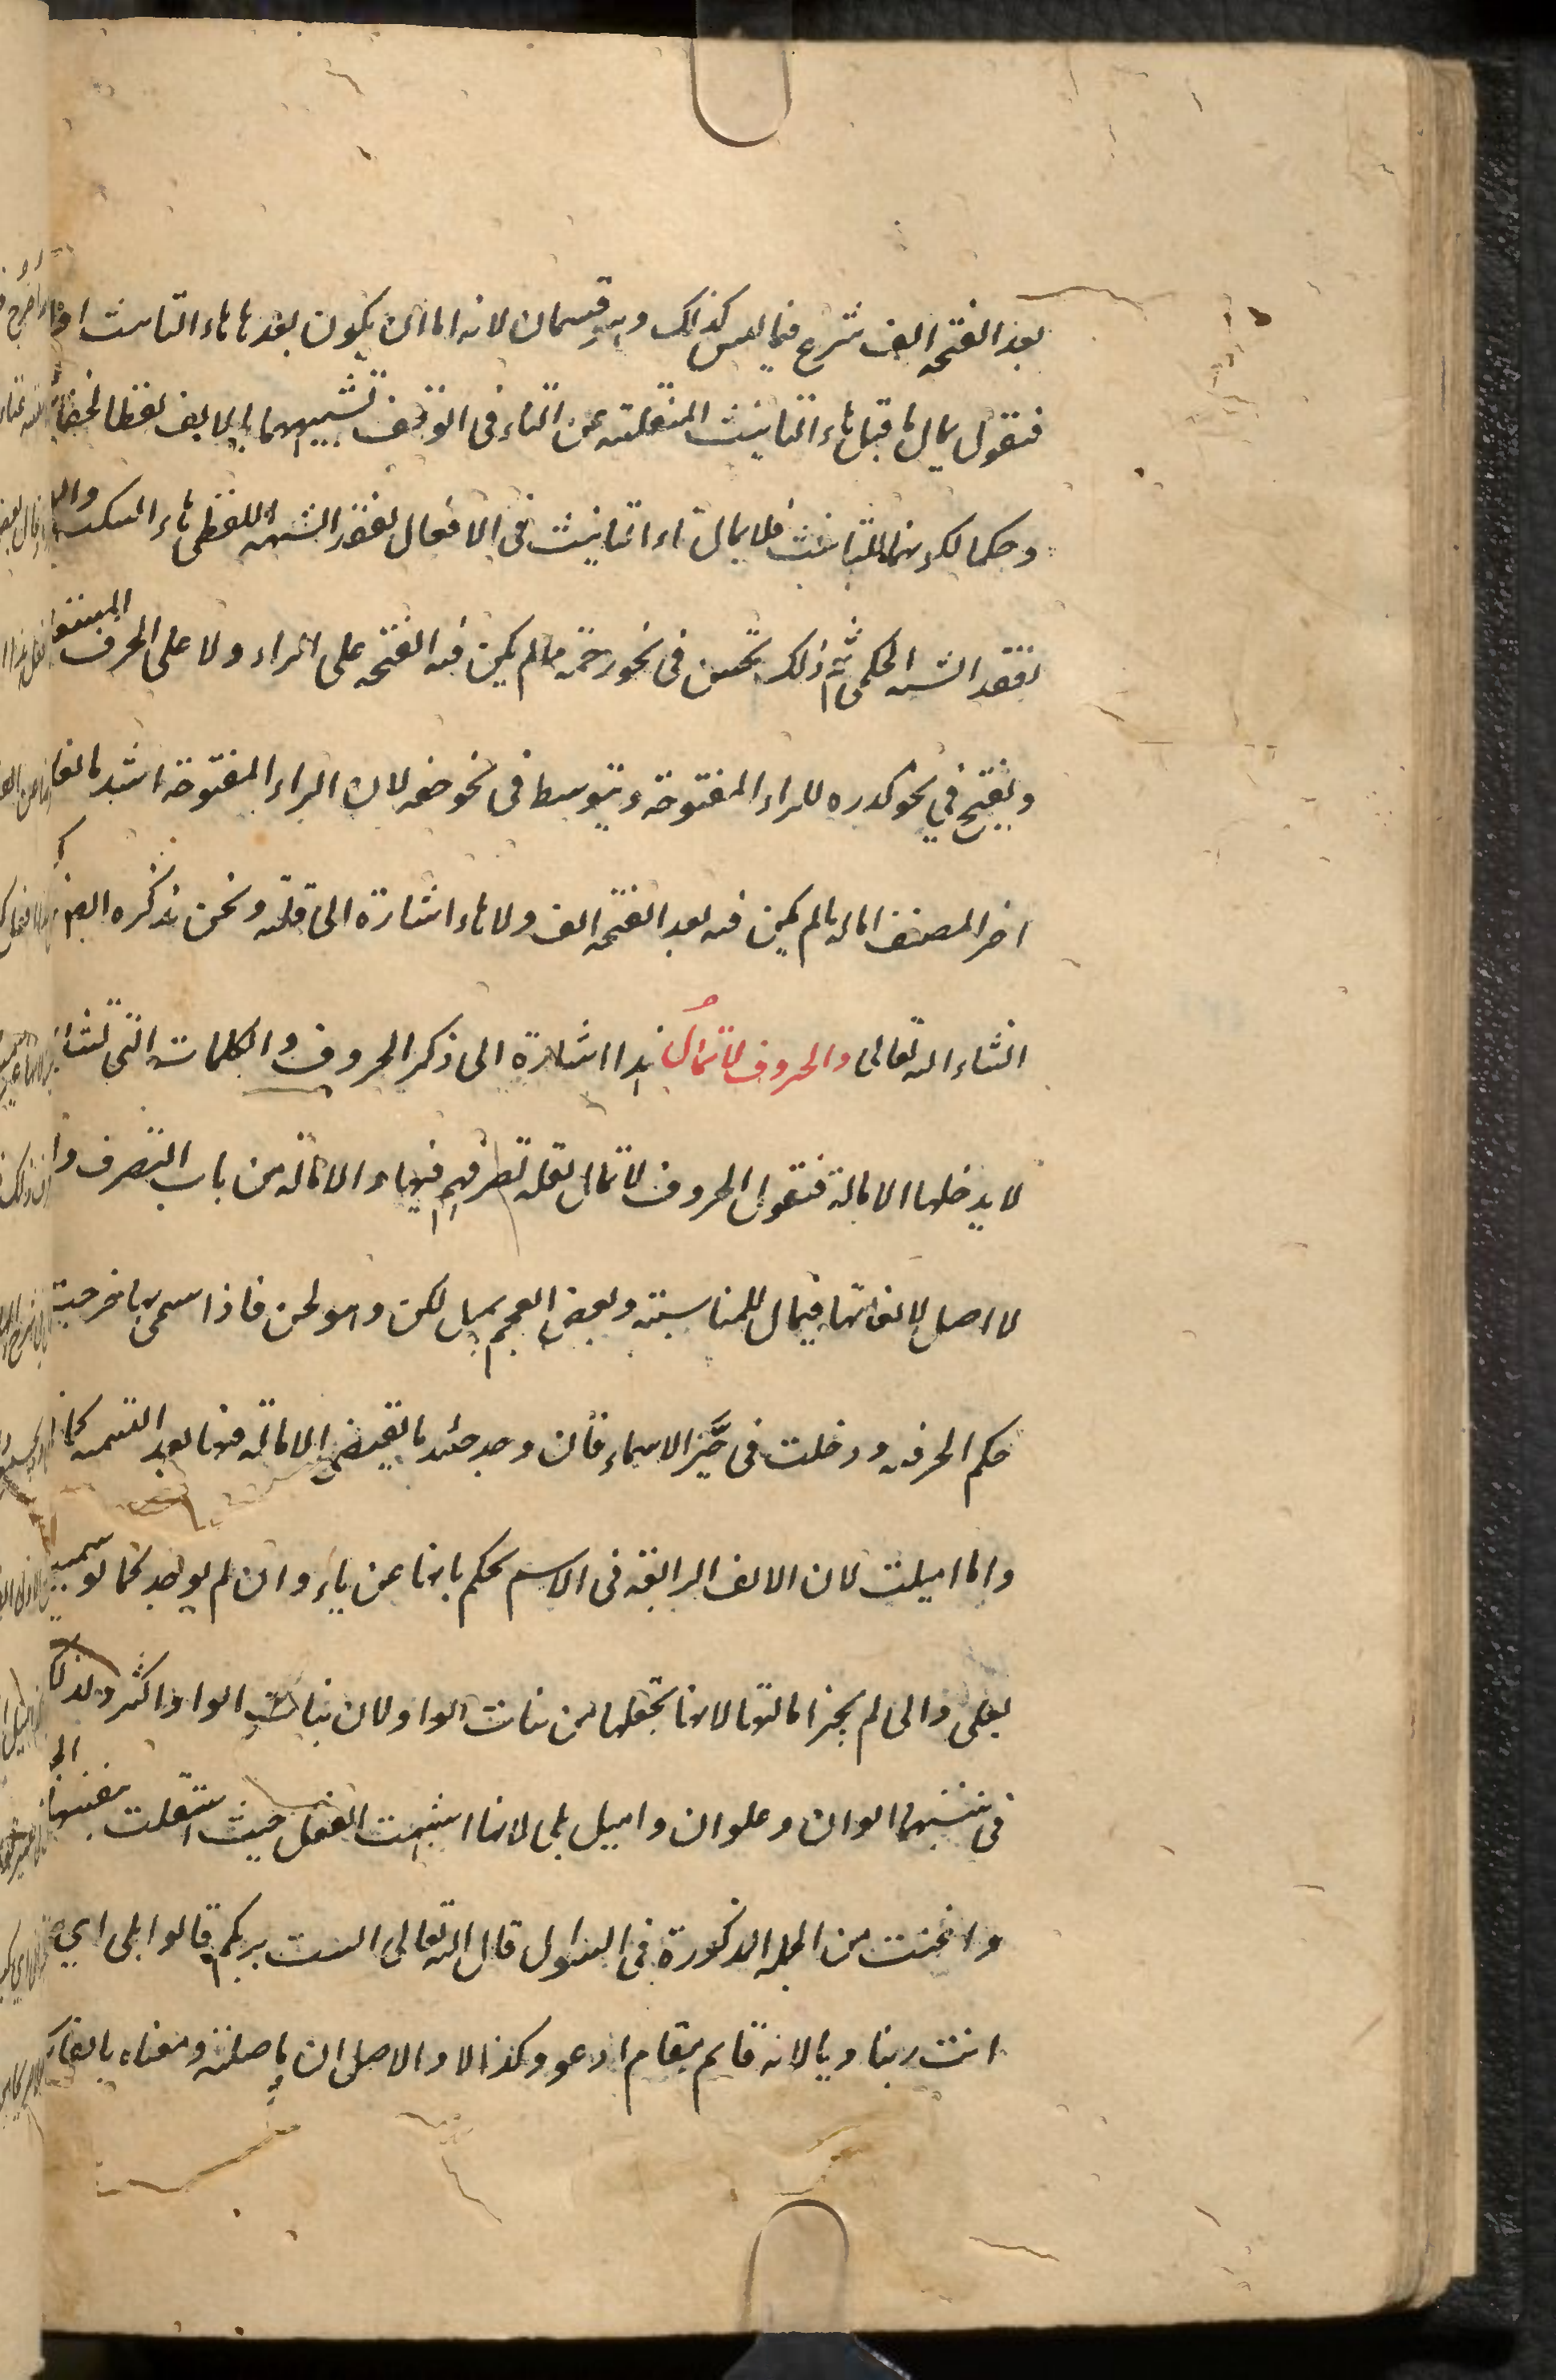 بعد الفتحه الف شرع فيما ليس كذلك وهو قسمان لانه اما ان يكون بعدها هاء التانيث اولا
فنقول يمال ما قبل هاء التانيث المنقلبة عن التاء فى الوقف تشبيها لها بالالف لفظا لخفائها
وحكما لكونهما للتانيث فلا يمال تاء التانيث فى الافعال لفقد الشبه اللفظى هاء السكت
لفقد الشبه الحكمى ثم ذلك يحسن فى نحو رحمة مالم يكن فيه الفتحه على الراء ولا على الحرف المستعلى
ويقبح في نحو كدره للراء المفتوحة ويتوسط فى نحو حقه لان الراء المفتوحة اشد مانعا
اخر المصنف امالة مالم يكن فيه بعد الفتحه الف ولا هاء اشارة الى قلته ونحن نذكره
انشاء الله تعالى والحروف لا تمال هذا اشارة الى ذكر الحروف والكلمات التى
لا يدخلها الامالة فنقول الحروف لا تمال لقلة تصرفهم فيها والامالة من باب التصرف و
لا اصل لالفاتها فيمال للمناسبة وبعض العجم يميل لكن وهو لحن فاذا سمى بها خرجت
حكم الحرفيه ودخلت فى حيّز الاسماء فان وجد حينئذ ما يقتضى الامالة فيها بعد التسمية
وانما اميلت لان الالف الرابعة فى الاسم يحكم بانها عن ياء وان لم يوجد كما لو سميت
بعلى والى لم يجز امالتها لانها تجعلها من بنات الواو لان بنات الواو اكثر ولذلك
فى تثنيتهما الوان وعلوان واميل بلى لانها اشبهت الفعل حيث استقلت بنفسها
واغنت من الجملة المذكورة فى السؤال قال الله تعالى الست بربكم قالوا بلى اي
انت ربنا ويا لانه قايم مقام ادعو وكذا الا والاصل ان ما صلة ومعناه